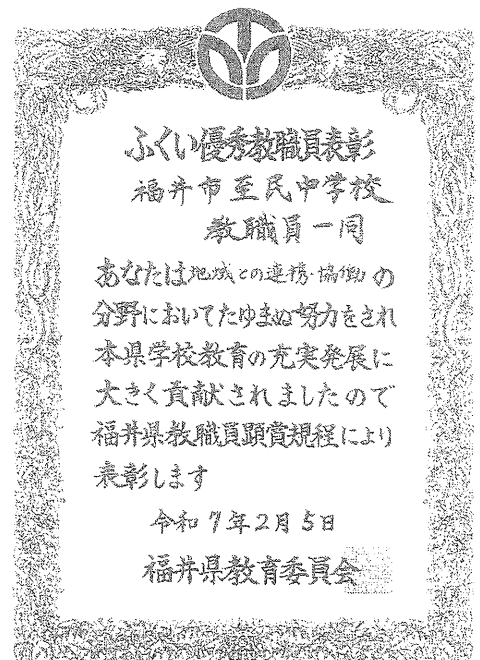 ふくい優秀教職員表彰
福井市至民中学校
教職員一同
あなたは地域との連携・協働の
分野においてたゆまぬ努力をされ
本県学校教育の充実発展に
大きく貢献されましたので
福井県教職員顕賞規程により
表彰します
令和7年2月5日
福井県教育委員会